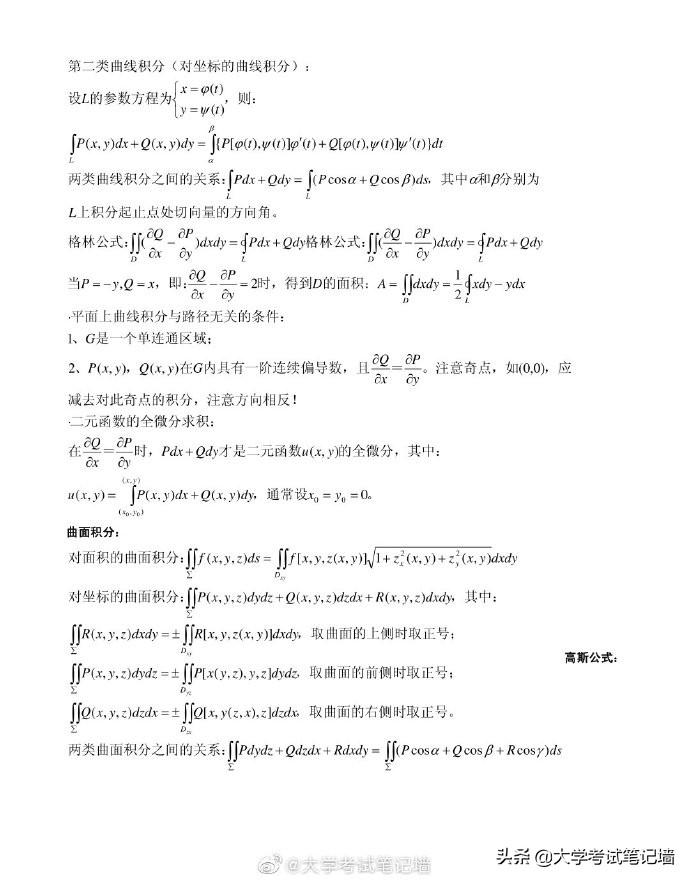 第二类曲线积分（对坐标的曲线积分）：
设L的参数方程为{x = φ(t)  y = ψ(t)，则：
∫_L P(x, y)dx + Q(x, y)dy = ∫_α^β {P[φ(t),ψ(t)]φ′(t) + Q[φ(t),ψ(t)]ψ′(t)}dt
两类曲线积分之间的关系：∫_L Pdx + Qdy = ∫_L (P cos α + Q cos β)ds，其中α和β分别为
L上积分起止点处切向量的方向角。
格林公式：∬_D (∂Q/∂x − ∂P/∂y)dxdy = ∮_L Pdx + Qdy格林公式：∬_D (∂Q/∂x − ∂P/∂y)dxdy = ∮_L Pdx + Qdy
当P = −y,Q = x，即：∂Q/∂x − ∂P/∂y = 2时，得到D的面积：A = ∬_D dxdy = 1/2 ∮_L xdy − ydx
·平面上曲线积分与路径无关的条件：
1、G是一个单连通区域；
2、P(x, y)，Q(x, y)在G内具有一阶连续偏导数，且∂Q/∂x = ∂P/∂y。注意奇点，如(0,0)，应
减去对此奇点的积分，注意方向相反！
·二元函数的全微分求积：
在∂Q/∂x = ∂P/∂y时，Pdx + Qdy才是二元函数u(x, y)的全微分，其中：
u(x, y) = ∫_(x₀,y₀)^(x,y) P(x, y)dx + Q(x, y)dy，通常设x₀ = y₀ = 0。
曲面积分：
对面积的曲面积分：∬_Σ f(x, y, z)ds = ∬_Dxy f[x, y, z(x, y)]√(1 + z_x²(x, y) + z_y²(x, y))dxdy
对坐标的曲面积分：∬_Σ P(x, y, z)dydz + Q(x, y, z)dzdx + R(x, y, z)dxdy，其中：
∬_Σ R(x, y, z)dxdy = ±∬_Dxy R[x, y, z(x, y)]dxdy，取曲面的上侧时取正号；
高斯公式：
∬_Σ P(x, y, z)dydz = ±∬_Dyz P[x(y, z), y, z]dydz，取曲面的前侧时取正号；
∬_Σ Q(x, y, z)dzdx = ±∬_Dzx Q[x, y(z, x), z]dzdx，取曲面的右侧时取正号。
两类曲面积分之间的关系：∬_Σ Pdydz + Qdzdx + Rdxdy = ∬_Σ (P cos α + Q cos β + R cos γ)ds
@大学考试笔记墙
头条 @大学考试笔记墙